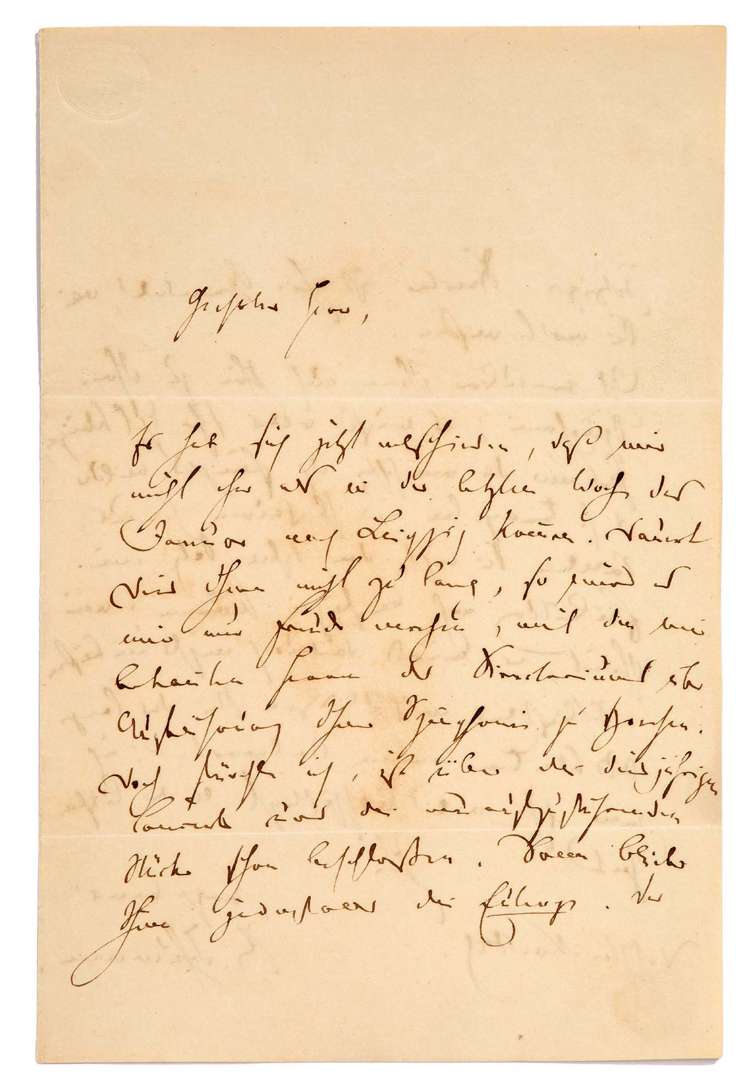 Geehrter Herr,
Es hat sich jetzt entschieden, daß wir
nicht eher als in der letzten Woche des
Januar nach Leipzig kommen. Dauert
dies Ihnen nicht zu lang, so würd es
mir nur Freude machen, mit den mir
bekannten Herren des Directoriums über
Aufführung Ihrer Symphonie zu sprechen.
Doch fürcht' ich, ist über die diesjährigen
Concerte und die aufzuführenden
Stücke schon beschlossen. Dann bliebe
Ihnen jedenfalls die Euterpe. Der